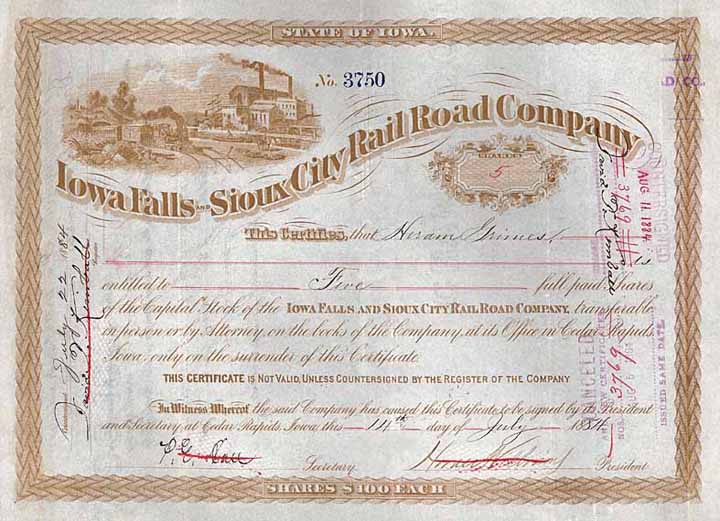 STATE OF IOWA.
No. 3750
Iowa Falls AND Sioux City Rail Road Company
SHARES
5
This Certifies, that Hiram Grimes is
entitled to Five full paid Shares
of the Capital Stock of the IOWA FALLS AND SIOUX CITY RAIL ROAD COMPANY, transferable
in person or by Attorney, on the books of the Company at its Office in Cedar Rapids,
Iowa, only on the surrender of this Certificate.
THIS CERTIFICATE IS NOT VALID, UNLESS COUNTERSIGNED BY THE REGISTER OF THE COMPANY
In Witness Whereof the said Company has caused this Certificate to be signed by its President
and Secretary at Cedar Rapids, Iowa, this 14th day of July 1884.
P.E. Hall Secretary. President
SHARES $100 EACH
July 22 1884
AUG 11 1884
COUNTERSIGNED
3769
David P. Kimball
CANCELED
AND NEW CERTIFICATE
NOS.
ISSUED SAME DATE.